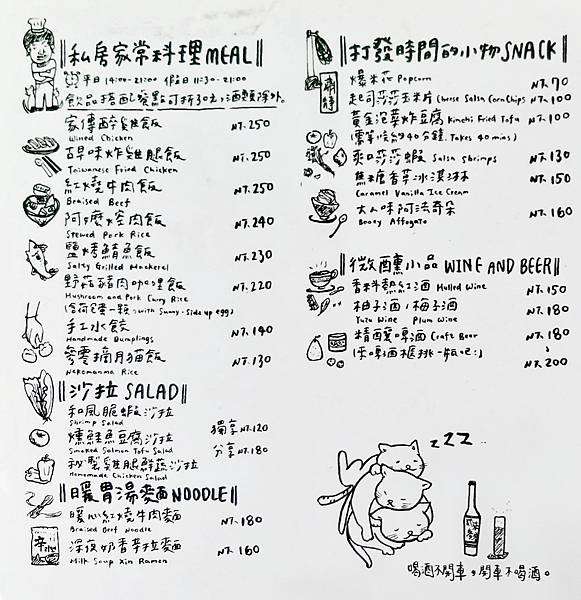 私房家常料理 MEAL
平日 14:00-21:00 假日 11:30-21:00
飲品搭配餐點可折30元，酒類除外。
家傳醉雞飯 NT.250
Wined Chicken
古早味炸雞腿飯 NT.250
Taiwanese Fried Chicken
紅燒牛肉飯 NT.250
Braised Beef
阿嬤控肉飯 NT.240
Stewed Pork Rice
鹽烤鯖魚飯 NT.230
Salty Grilled Mackerel
野菇豬肉咖哩飯 NT.220
Mushroom and Pork Curry Rice
(含荷包蛋一顆, with Sunny-side up egg)
手工水餃 NT.140
Handmade Dumplings
麥零摘月貓飯 NT.130
Nekomanma Rice
沙拉 SALAD
和風脆蝦沙拉
Shrimp Salad
燻鮭魚豆腐沙拉
Smoked Salmon Tofu Salad
秘製雞腿鮮蔬沙拉
Homemade Chicken Salad
獨享 NT.120
分享 NT.180
暖胃湯麵 NOODLE
暖心紅燒牛肉麵 NT.180
Braised Beef Noodle
深夜奶香辛拉麵 NT.160
Milk Soup Xin Ramen
辛
打發時間的小物 SNACK
爆米花 Popcorn NT.70
起司莎莎玉米片 Cheese Salsa Corn Chips NT.100
黃金泡菜炸豆腐 Kimchi Fried Tofu NT.100
(需等候約40分鐘, Takes 40 mins)
爽口莎莎蝦 Salsa Shrimps NT.130
焦糖香草冰淇淋 NT.150
Caramel Vanilla Ice Cream
大人味阿法奇朵 NT.160
Boozy Affogato
微醺小品 WINE AND BEER
香料熱紅酒 Mulled Wine NT.150
柚子酒/梅子酒 NT.180
Yuzu Wine Plum Wine
精釀啤酒 Craft Beer NT.180
(來啤酒櫃挑一瓶吧:) ~
NT.200
zZZ
喝酒不開車，開車不喝酒。